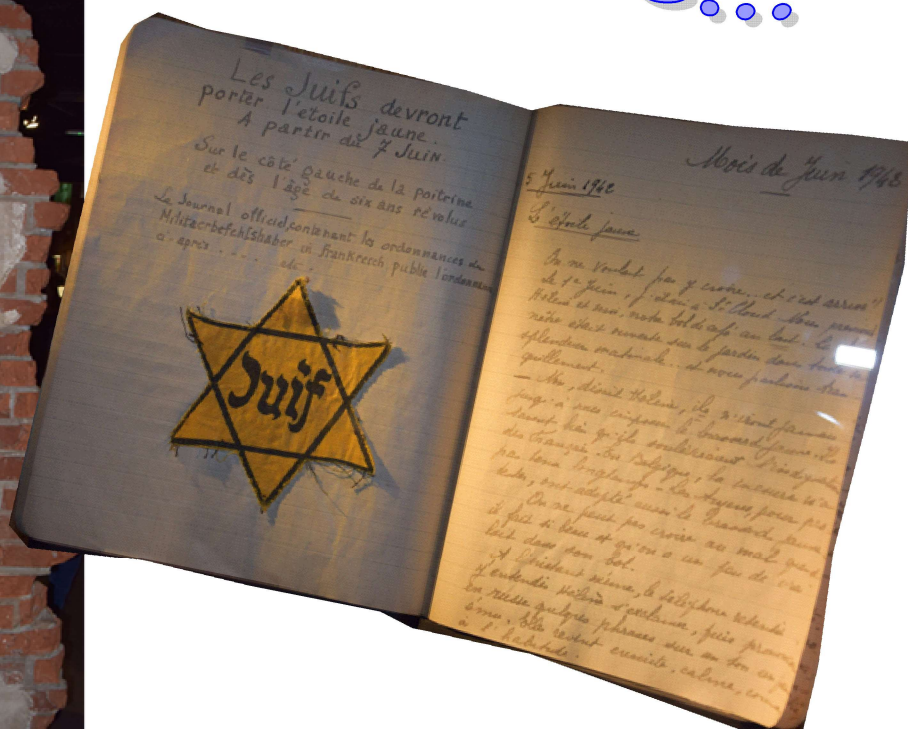 Les Juifs devront
porter l'étoile jaune.
A partir du 7 Juin.
Sur le côté gauche de la poitrine
et dès l'âge de six ans révolus
Le Journal officiel, contenant les ordonnances du
Militaerbefehlshaber in Frankreich publie l'ordonnance
ci-après
Juif
Mois de Juin 1942
5 Juin 1942
L'étoile jaune
Je ne voulais pas y croire... et c'est arrivé!
Le 1er Juin, j'étais à St Cloud. Nous prenions
Hélène et moi, notre bol de café au lait. La
nêtre était ouverte sur le jardin dans toute
splendeur matinale... et nous parlions tran
quillement.
— Non, disait Hélène, ils n'iront jamais
jusqu'à nous imposer le brassard jaune. Ils
savent bien qu'ils soulèveraient l'indignation
des Français. En Belgique, la mesure
par tous
aussi le brassard jaune
On ne peut pas croire au mal quand
il fait si beau et qu'on a un peu de
lait dans son bol.
A l'instant même, le téléphone retentit
J'entendis Hélène s'exclamer, puis
en russe quelques phrases sur un ton
ému. Elle revint ensuite, calme, comme
à l'habitude.